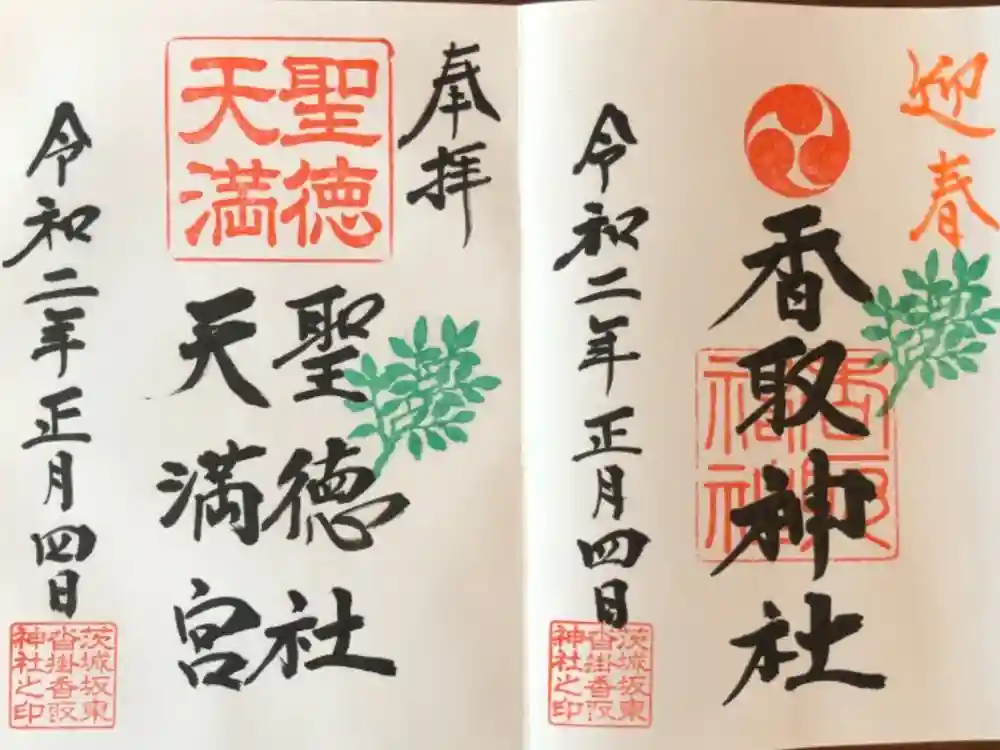 迎春
香取神社
香取神社
令和二年正月四日
茨城坂東
沓掛香取
神社之印
奉拝
聖徳
天満
聖徳社
天満宮
令和二年正月四日
茨城坂東
沓掛香取
神社之印